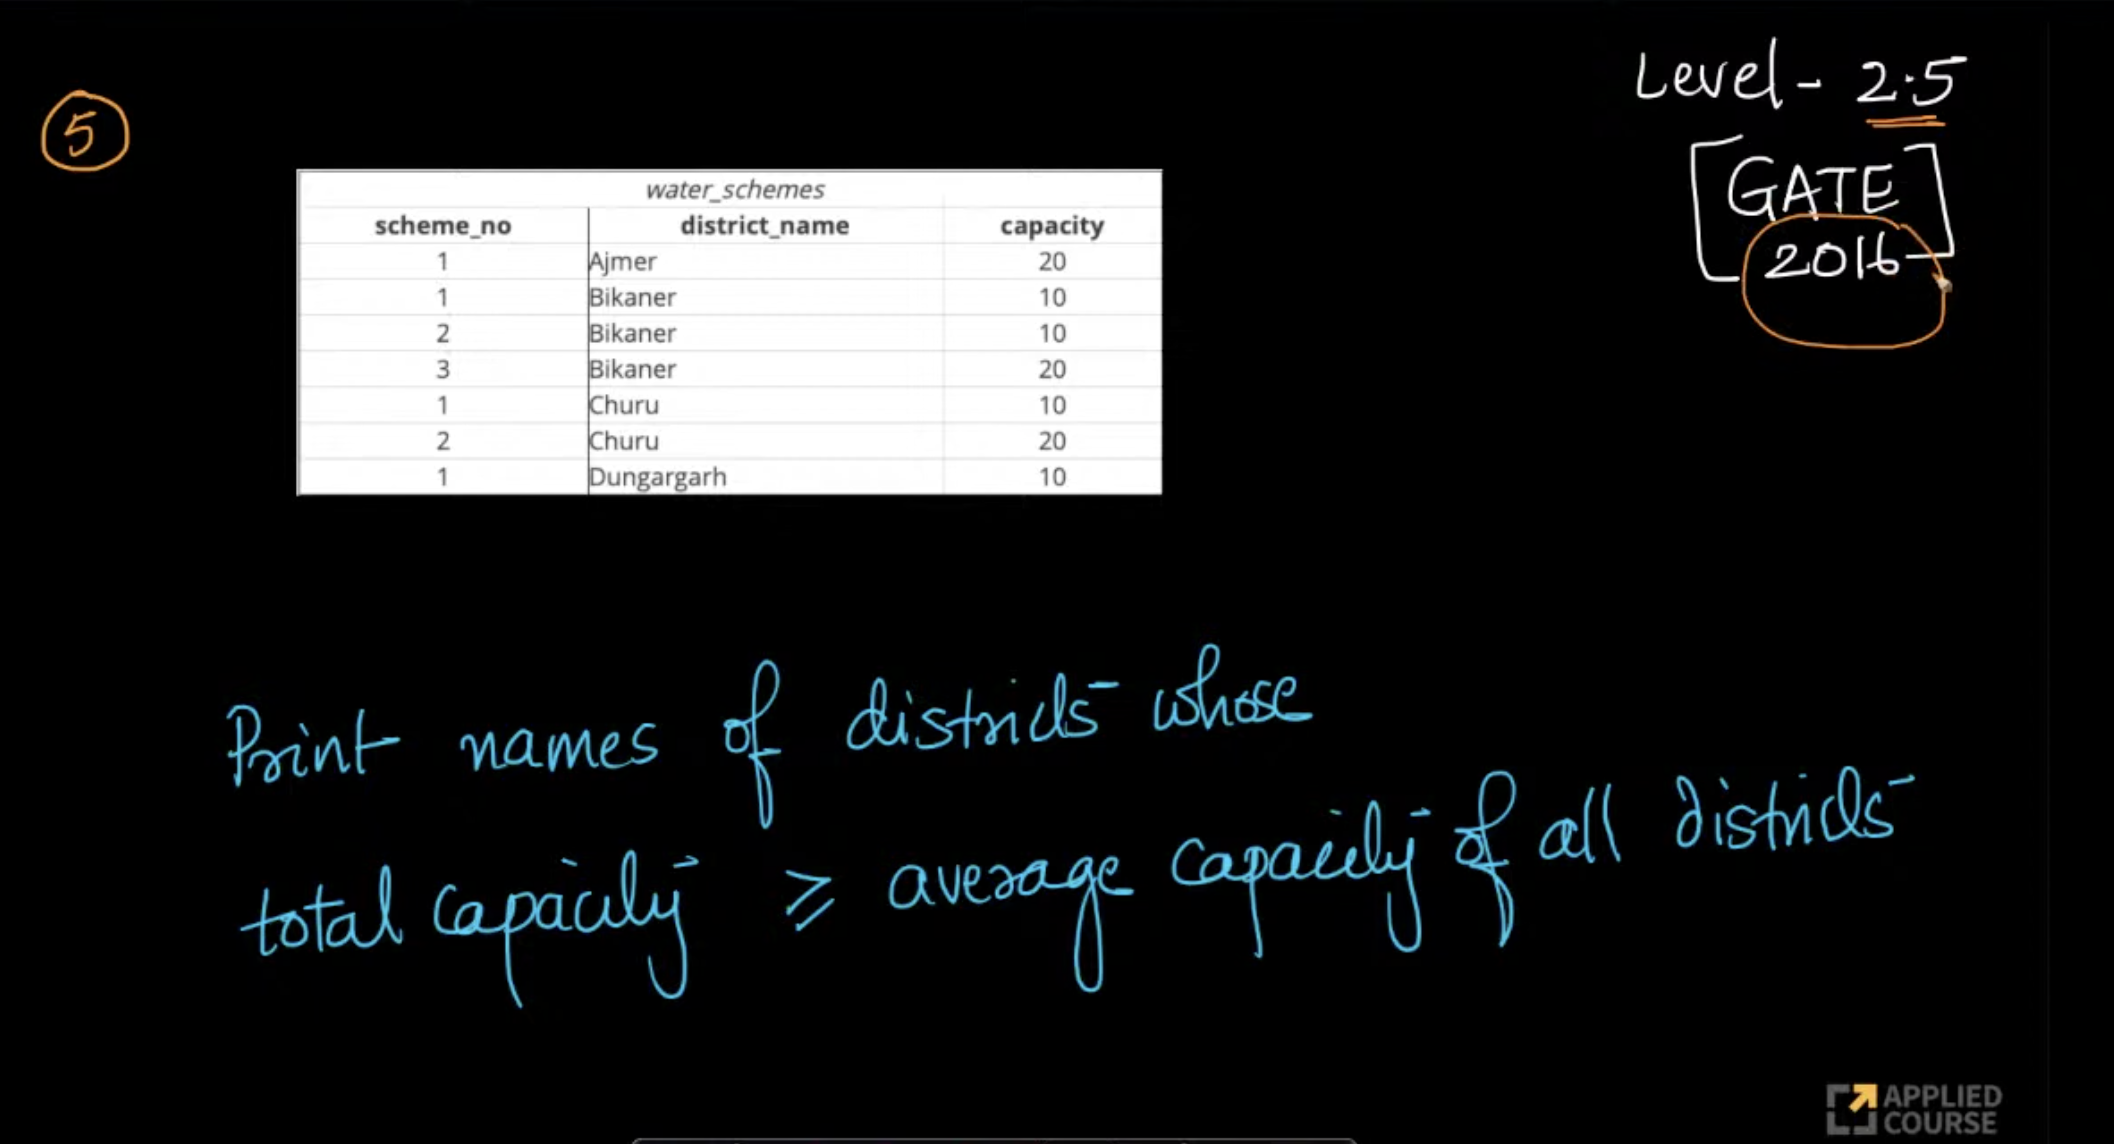 Level - 2.5
5
[GATE
2016]
water_schemes
scheme_no district_name capacity
1 Ajmer 20
1 Bikaner 10
2 Bikaner 10
3 Bikaner 20
1 Churu 10
2 Churu 20
1 Dungargarh 10
Print names of districts whose
total capacity ≥ average capacity of all districts
APPLIED
COURSE